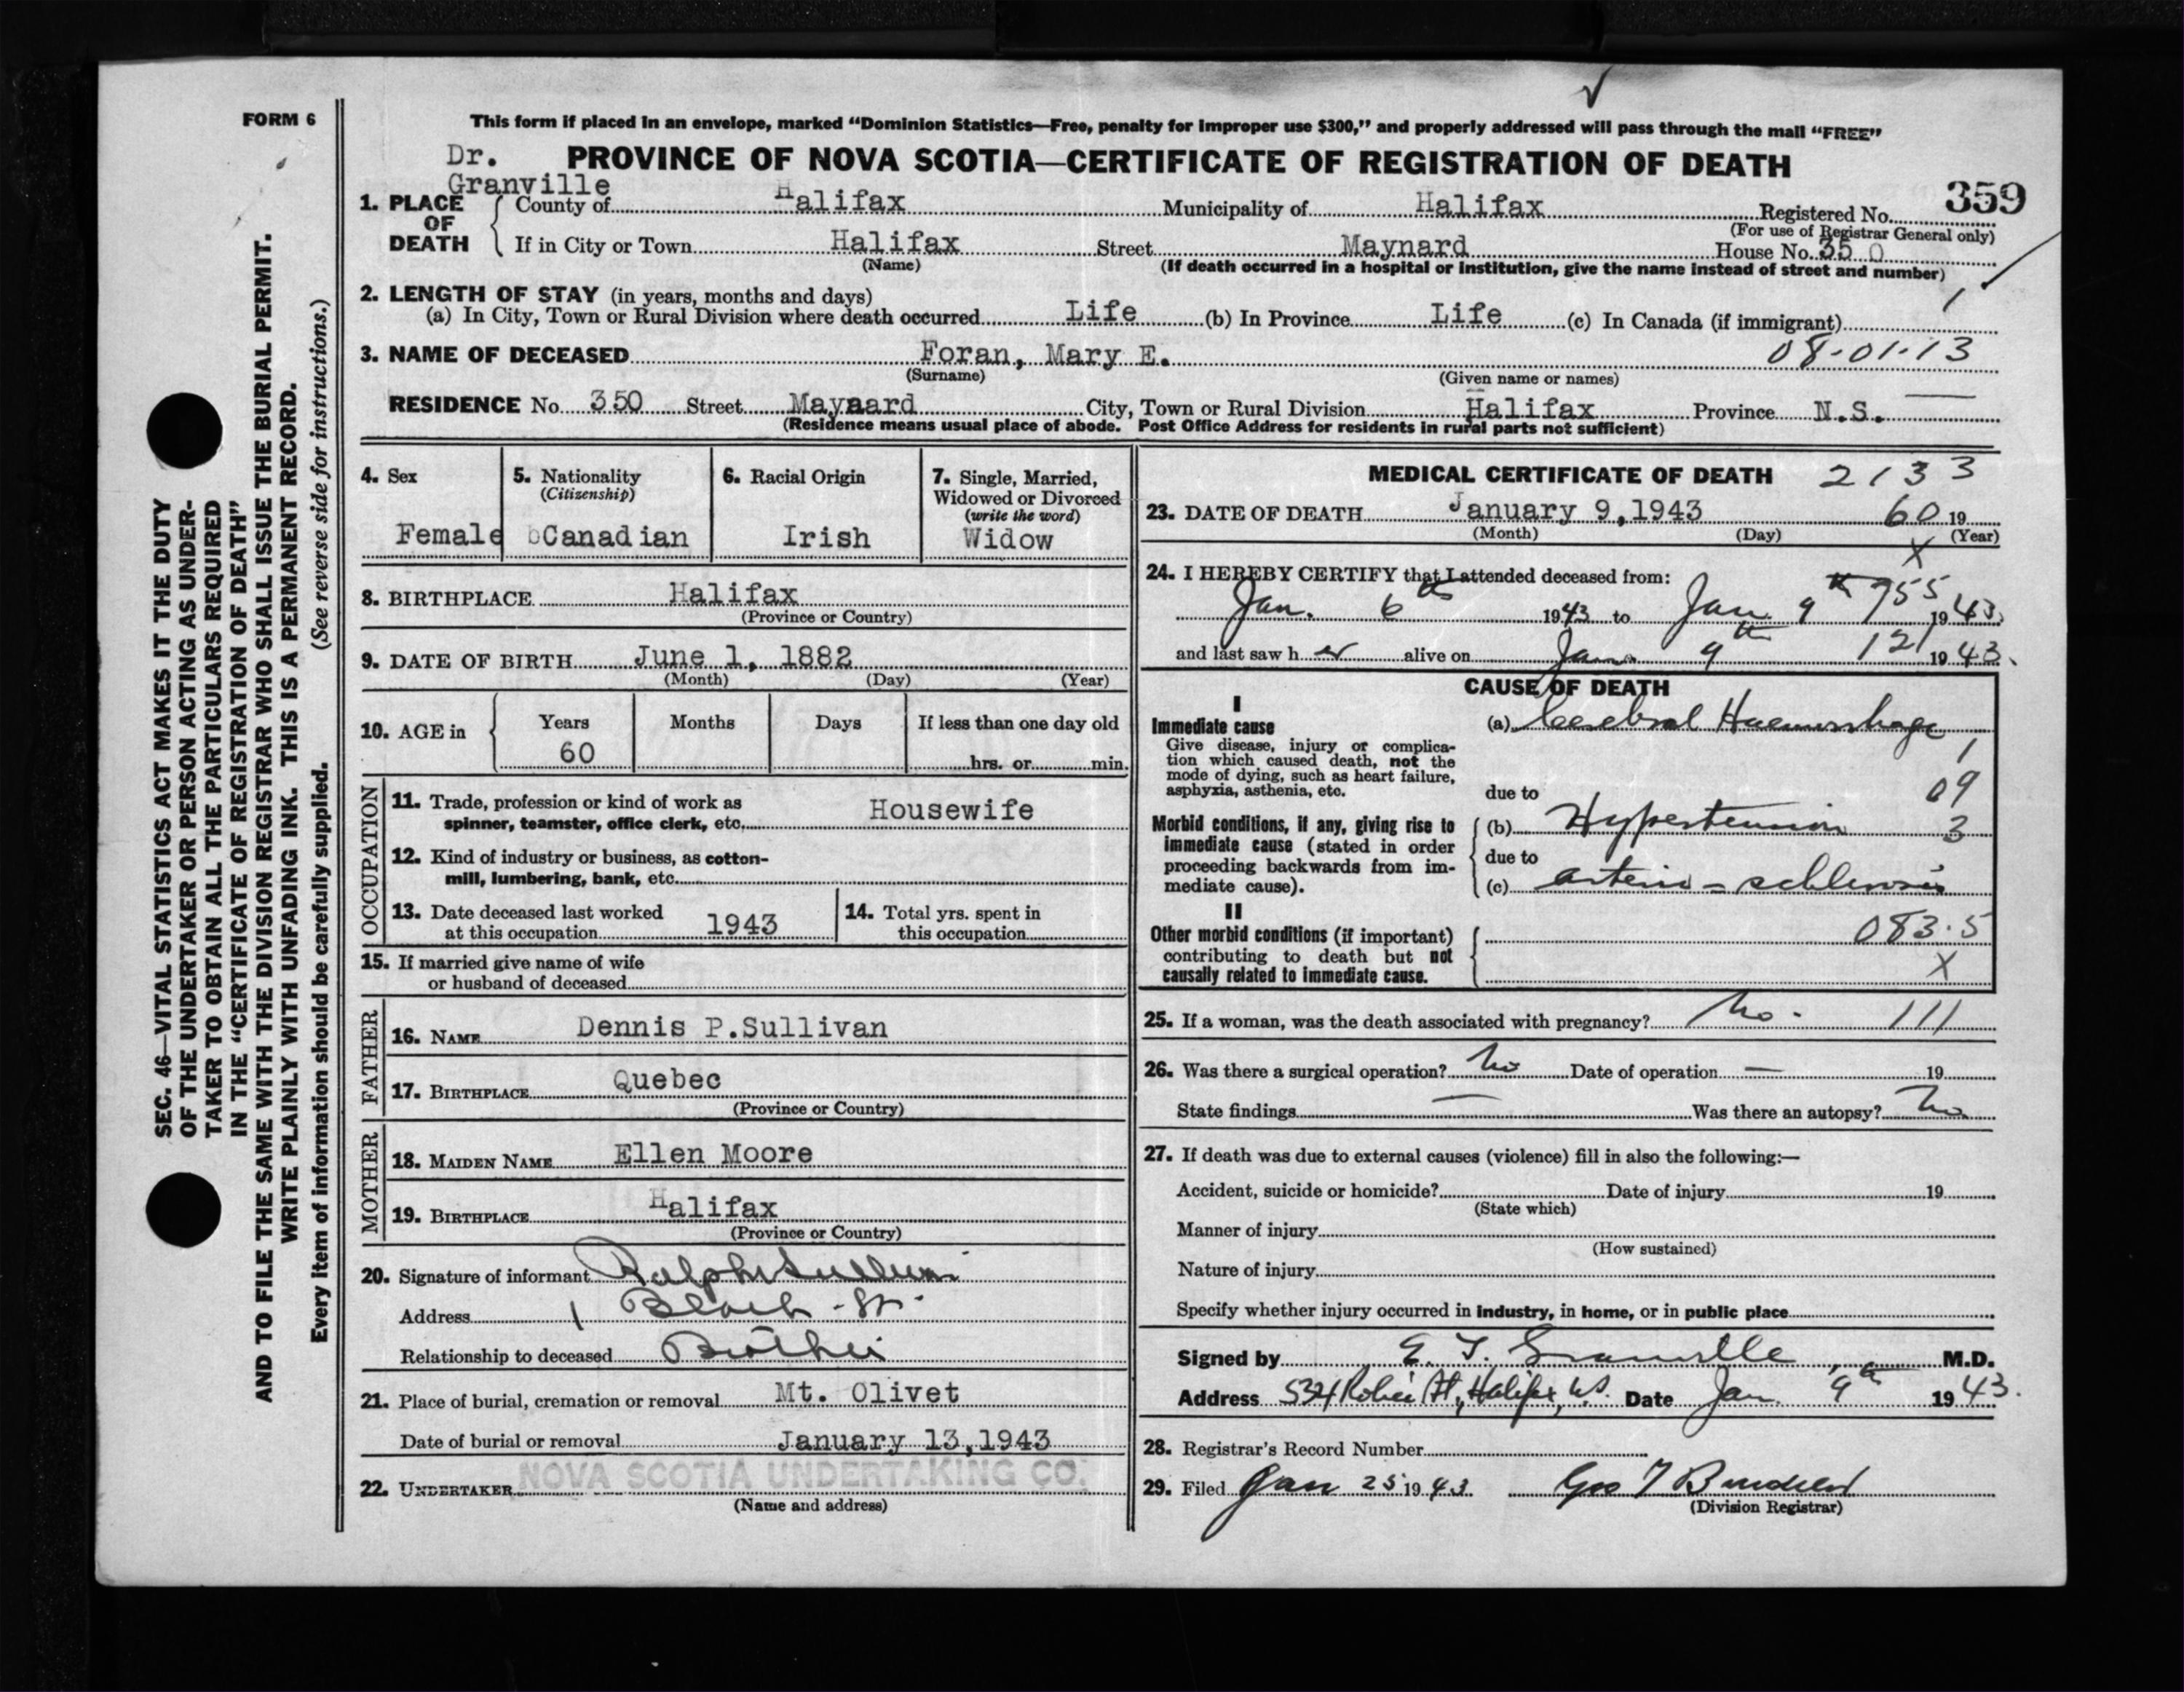 FORM 6
This form if placed in an envelope, marked “Dominion Statistics—Free, penalty for improper use $300,” and properly addressed will pass through the mail “FREE”
Dr. Granville
PROVINCE OF NOVA SCOTIA—CERTIFICATE OF REGISTRATION OF DEATH
359
1. PLACE OF DEATH
County of Halifax Municipality of Halifax Registered No.
(For use of Registrar General only)
If in City or Town Halifax Street Maynard House No. 350
(Name) (If death occurred in a hospital or institution, give the name instead of street and number)
2. LENGTH OF STAY (in years, months and days)
1
(a) In City, Town or Rural Division where death occurred Life (b) In Province Life (c) In Canada (if immigrant)
3. NAME OF DECEASED Foran, Mary E. 08-01-13
(Surname) (Given name or names)
RESIDENCE No. 350 Street Maynard City, Town or Rural Division Halifax Province N.S.
(Residence means usual place of abode. Post Office Address for residents in rural parts not sufficient)
4. Sex
Female
5. Nationality
(Citizenship)
Canadian
6. Racial Origin
Irish
7. Single, Married,
Widowed or Divorced
(write the word)
Widow
8. BIRTHPLACE Halifax
(Province or Country)
9. DATE OF BIRTH June 1, 1882
(Month) (Day) (Year)
10. AGE in
Years Months Days If less than one day old
60
hrs. or min.
OCCUPATION
11. Trade, profession or kind of work as
spinner, teamster, office clerk, etc. Housewife
12. Kind of industry or business, as cotton-
mill, lumbering, bank, etc.
13. Date deceased last worked
at this occupation 1943
14. Total yrs. spent in
this occupation
15. If married give name of wife
or husband of deceased
FATHER
16. NAME Dennis P. Sullivan
17. BIRTHPLACE Quebec
(Province or Country)
MOTHER
18. MAIDEN NAME Ellen Moore
19. BIRTHPLACE Halifax
(Province or Country)
20. Signature of informant Ralph Sullivan
Address 1 St.
Relationship to deceased Brother
21. Place of burial, cremation or removal Mt. Olivet
Date of burial or removal January 13, 1943
22. UNDERTAKER NOVA SCOTIA UNDERTAKING CO.
(Name and address)
MEDICAL CERTIFICATE OF DEATH 2133
23. DATE OF DEATH January 9, 1943 60 19
(Month) (Day) (Year)
X
24. I HEREBY CERTIFY that I attended deceased from:
Jan. 6th 1943 to Jan 9th 755 1943.
and last saw her alive on Jan. 9th 121 1943.
CAUSE OF DEATH
I
Immediate cause
Give disease, injury or complica-
tion which caused death, not the
mode of dying, such as heart failure,
asphyxia, asthenia, etc.
(a) Cerebral Haemorrhage
1
due to 09
Morbid conditions, if any, giving rise to
immediate cause (stated in order
proceeding backwards from im-
mediate cause).
(b) Hypertension 3
due to
(c) arterio-schlerosis
II
Other morbid conditions (if important)
contributing to death but not
causally related to immediate cause.
083.5
X
25. If a woman, was the death associated with pregnancy? No. 111
26. Was there a surgical operation? No Date of operation — 19
State findings — Was there an autopsy? No
27. If death was due to external causes (violence) fill in also the following:—
Accident, suicide or homicide? Date of injury 19
(State which)
Manner of injury
(How sustained)
Nature of injury
Specify whether injury occurred in industry, in home, or in public place
Signed by E. F. Granville M.D.
Address 534 Robie St., Halifax, N.S. Date Jan. 9th 1943.
28. Registrar's Record Number
29. Filed Jan 25 1943. Geo
(Division Registrar)
SEC. 46—VITAL STATISTICS ACT MAKES IT THE DUTY
OF THE UNDERTAKER OR PERSON ACTING AS UNDER-
TAKER TO OBTAIN ALL THE PARTICULARS REQUIRED
IN THE “CERTIFICATE OF REGISTRATION OF DEATH”
AND TO FILE THE SAME WITH THE DIVISION REGISTRAR WHO SHALL ISSUE THE BURIAL PERMIT.
WRITE PLAINLY WITH UNFADING INK. THIS IS A PERMANENT RECORD.
Every item of information should be carefully supplied. (See reverse side for instructions.)